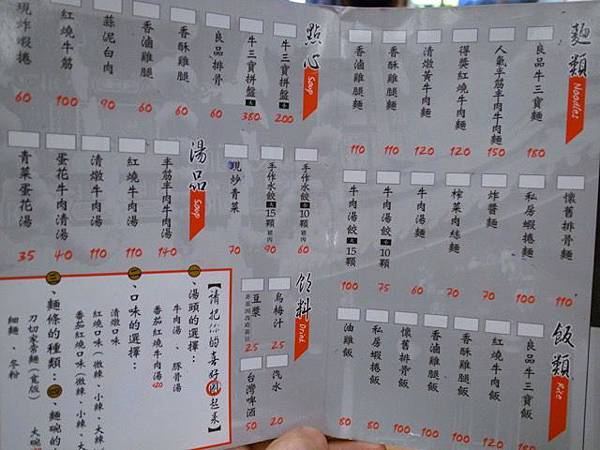 麵類
Noodles
良品牛三寶麵 180
人氣半筋半肉牛肉麵 150
得獎紅燒牛肉麵 120
清燉黃牛肉麵 120
香酥雞腿麵 110
香滷雞腿麵 110
懷舊排骨麵 110
私房蝦捲麵 100
炸醬麵 70
榨菜肉絲麵 70
牛肉湯麵 60
牛肉湯餃 小10顆 75
牛肉湯餃 大15顆 100
飯類
Rice
良品牛三寶飯 180
紅燒牛肉飯 120
香酥雞腿飯 100
香滷雞腿飯 100
懷舊排骨飯 100
私房蝦捲飯 80
油雞飯 80
點心
Soup
牛三寶拼盤 小 200
牛三寶拼盤 大 380
良品排骨 60
香酥雞腿 60
香滷雞腿 60
蒜泥白肉 90
紅燒牛筋 100
現炸蝦捲 60
手作水餃 小10顆 豬肉 60
手作水餃 大15顆 豬肉 90
現炒青菜 70
湯品
Soup
半筋半肉牛肉湯 140
紅燒牛肉湯 110
清燉牛肉湯 110
蛋花牛肉清湯 40
青菜蛋花湯 35
飲料
Drink
烏梅汁 25
豆漿 25
汽水 20
台灣啤酒 50
【請把你的喜好圈起來】
一、湯頭的選擇：
牛肉湯、豚骨湯
番茄紅燒牛肉湯+20
二、口味的選擇：
清燉口味
紅燒口味（微辣、小辣、大辣
番茄紅燒口味（微辣、小辣、大辣
三、麵條的種類
刀切家常麵（寬版）
細麵、冬粉
四、麵碗的
大碗